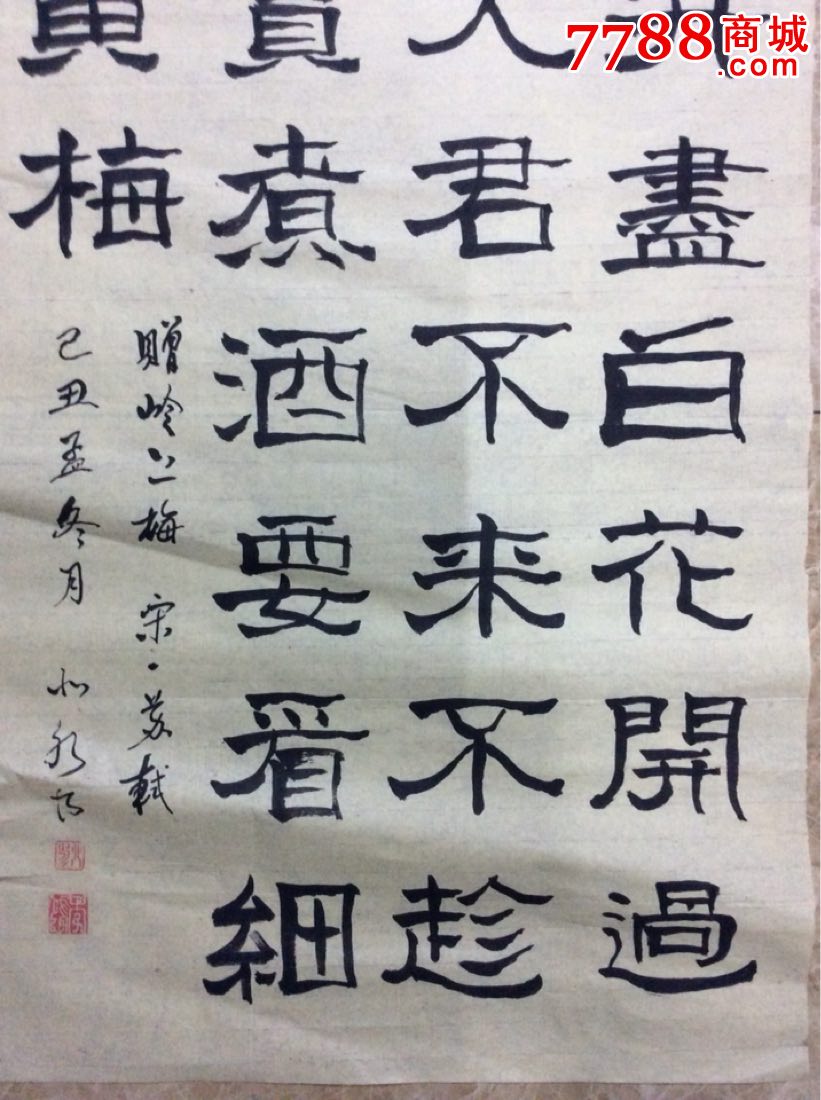 盡白花開過
人君不来不趁
煮酒要看細
黄梅
贈岭上梅 宋·苏軾
己丑孟冬月
7788商城
.com